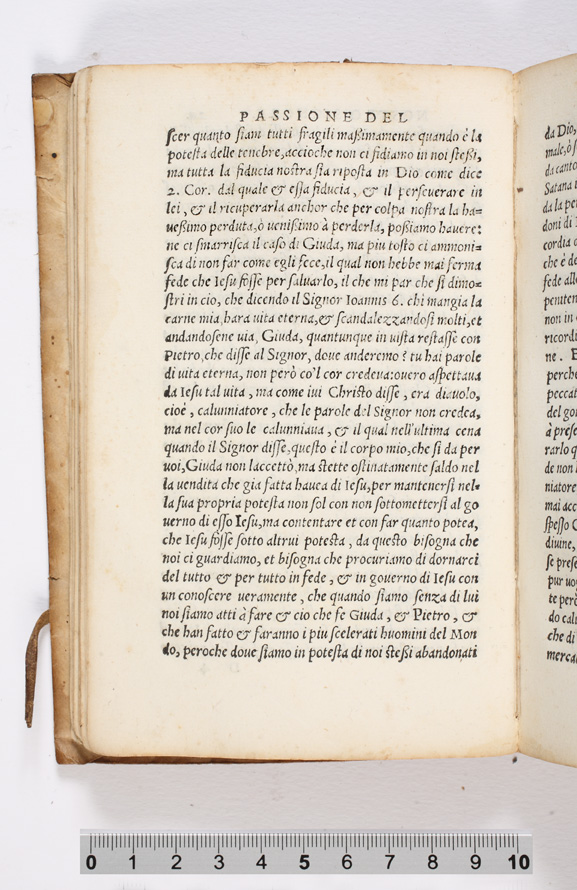 PASSIONE DEL
scer quanto siam tutti fragili maßimamente quando è la
potesta delle tenebre, accioche non ci fidiamo in noi steßi,
ma tutta la fiducia nostra sia riposta in Dio come dice
2. Cor. dal quale & essa fiducia, & il perseuerare in
lei, & il ricuperarla anchor che per colpa nostra la ha=
ueßimo perduta, ò uenißimo à perderla, poßiamo hauere:
ne ci smarrisca il caso di Giuda, ma piu tosto ci ammoni=
sca di non far come egli fece, il qual non hebbe mai ferma
fede che Iesu fosse per saluarlo, il che mi par che si dimo=
stri in cio, che dicendo il Signor Ioannis 6. chi mangia la
carne mia, hara uita eterna, & scandalezzandosi molti, et
andandosene uia, Giuda, quantunque in uista restasse con
Pietro, che disse al Signor, doue anderemo? tu hai parole
di uita eterna, non però co'l cor credeua: ouero aspettaua
da Iesu tal uita, ma come iui Christo disse, era diauolo,
cioè, calunniatore, che le parole del Signor non credea,
ma nel cor suo le calunniaua, & il qual nell'ultima cena
quando il Signor disse, questo è il corpo mio, che si da per
uoi, Giuda non l'accettò, ma stette ostinatamente saldo nel
la uendita che gia fatta hauea di Iesu, per mantenersi nel=
la sua propria potesta non sol con non sottomettersi al go
uerno di esso Iesu, ma contentare et con far quanto potea,
che Iesu fosse sotto altrui potesta, da questo bisogna che
noi ci guardiamo, et bisogna che procuriamo di dornarci
del tutto & per tutto in fede, & in gouerno di Iesu con
un conoscere ueramente, che quando siamo senza di lui
noi siamo atti à fare & cio che fe Giuda, & Pietro, &
che han fatto & faranno i piu scelerati huomini del Mon
do, peroche doue siamo in potesta di noi steßi abandonati
da Dio,
male, ò s
da canto
Satana
da la pe
doni di
cordia
che è de
fede all
peniten
non in
ricordi
ne. E
perche
peccat
del go
à prese
rarlo q
de non
niatore
mai acc
spesso C
diuine,
se prese
pur uo
te però
do cal
che di
merca